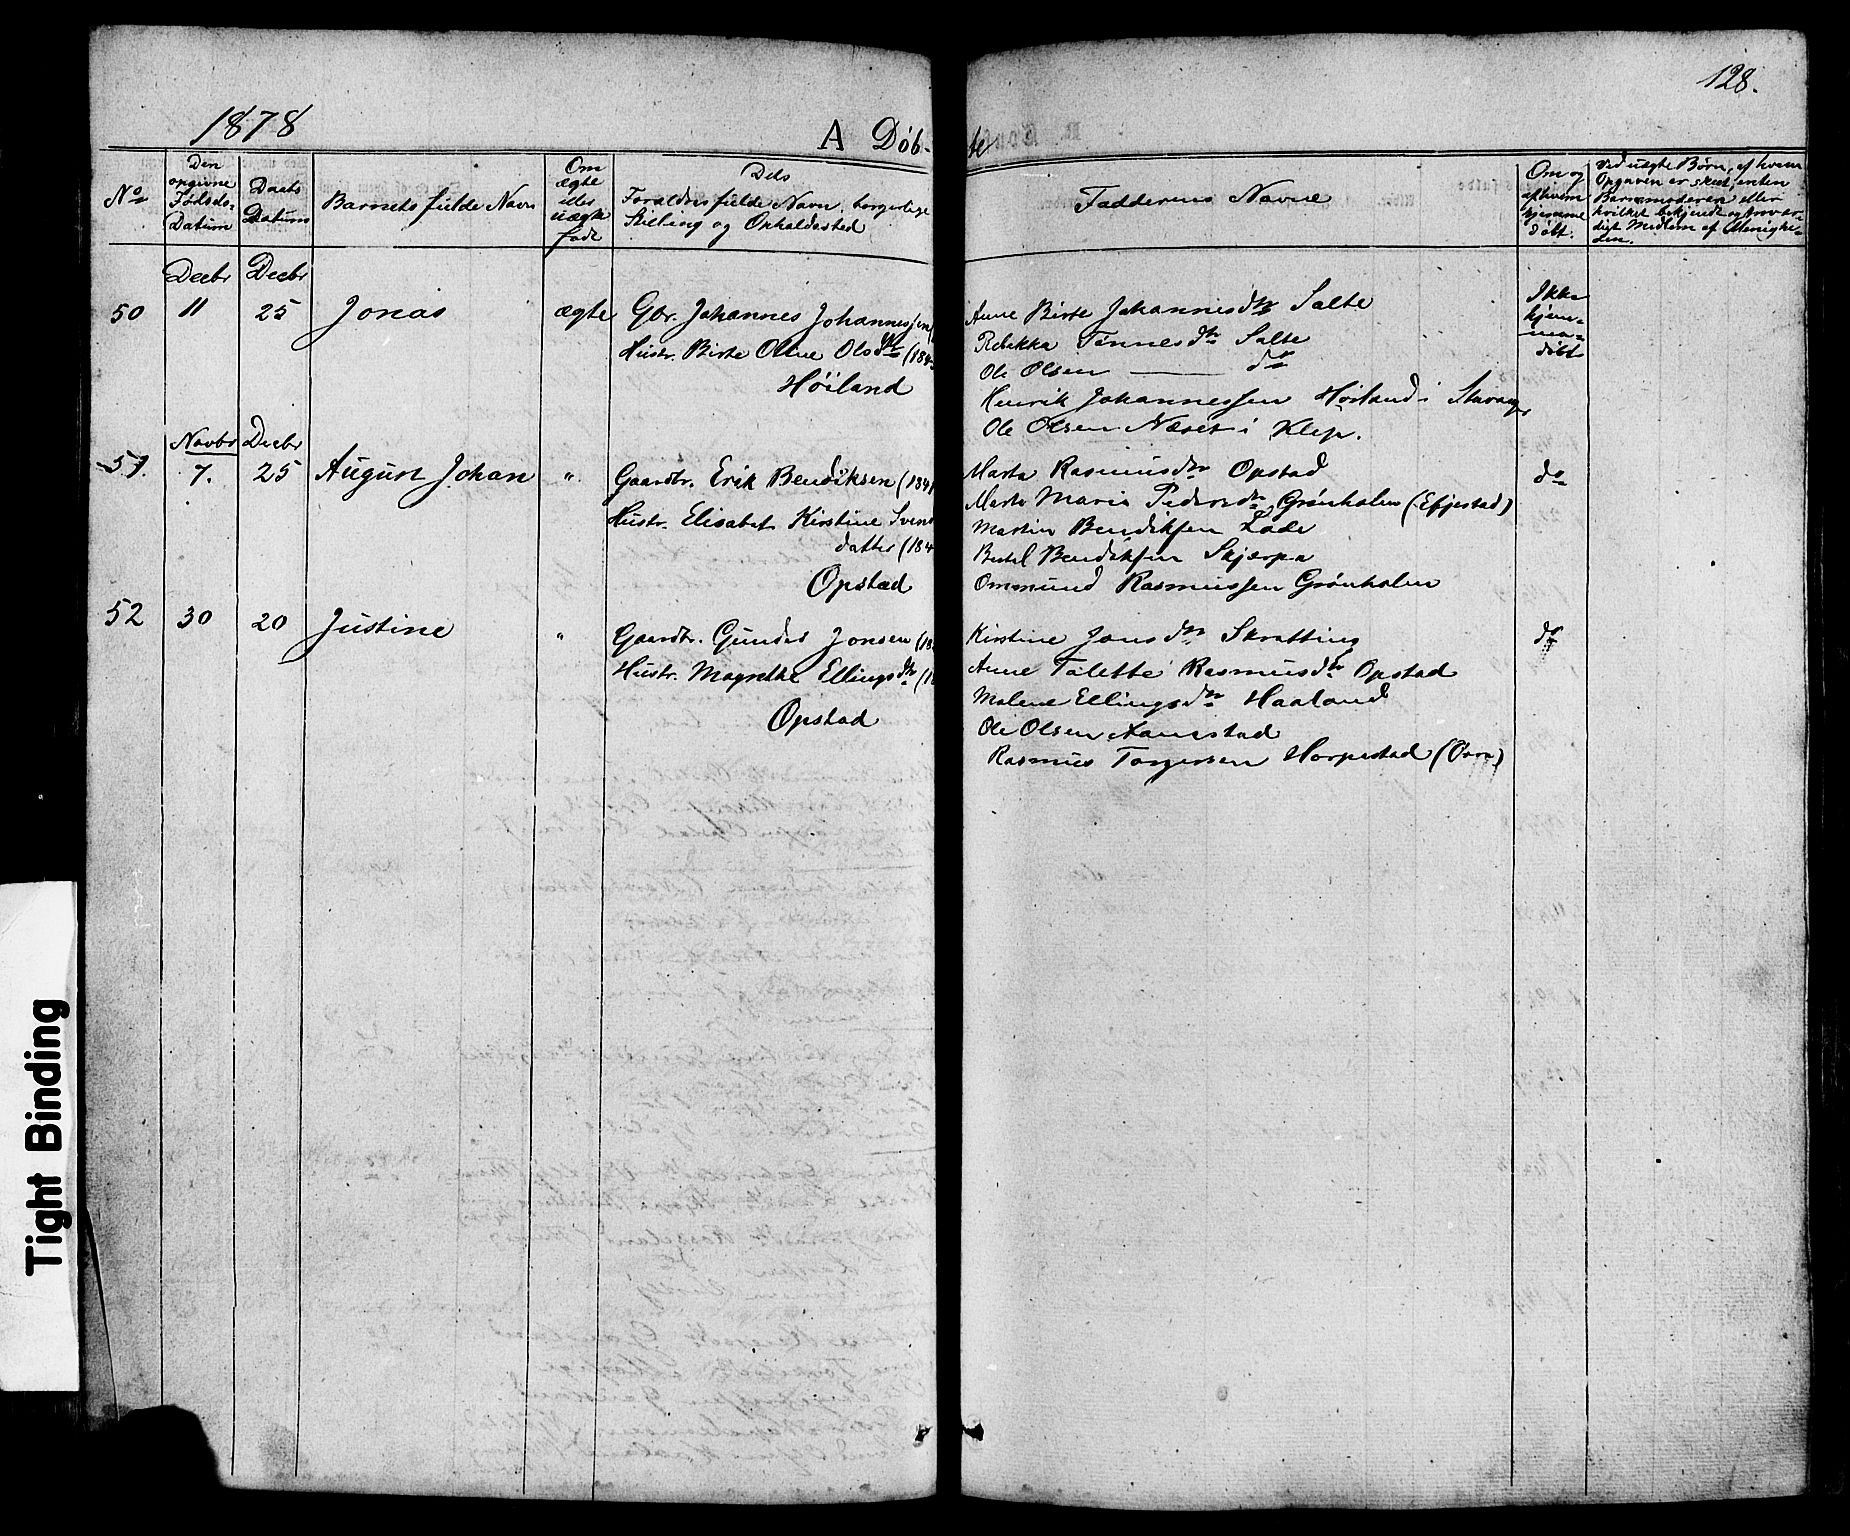 128.
1878
A Døb-
te
No
Den
opgivne
Fødsels-
Datum
Daabs
Datum
Barnets fulde Navn
Om
ægte
eller
uægte
født
Dets
Forældres fulde Navn, borgerlige
Stilling og Opholdssted
Faddernes Navne
Om og
af hvem
hjemme
døbt.
Ved uægte Børn, af hvem
Opgaven er skeet, enten
Barnemoderen eller
hvilket bekjendt og trovær-
digt Medlem af Menighe-
den.
Decbr Decbr
50 11 25 Jonas ægte Gbr. Johannes Johannessen (
Hustr. Birte Oline Olsdtr (184
Høiland
Anne Birte Johannesdtr Salte
Rebekka Tønnesdtr Salte
Ole Olsen do
Henrik Johannessen Høiland i Stavanger
Ole Olsen Næset i Klep.
Ikke
hjem-
me-
døbt
Novbr Decbr
51. 7. 25 August Johan " Gaardbr. Erik Bendiksen (184
Hustr. Elisabet Kirstine Svens
datter (184
Opstad
Marta Rasmusdtr Opstad
Marta Maria Pedersdtr Grønholen (Efjestad)
Martin Bendiksen Lode
Bertel Bendiksen Skjærpa
Ommund Rasmussen Grønholen
do
52 30 20 Justine " Gaardbr. Gunder Jonsen (18
Hustr. Magrethe Ellingsdtr (1
Opstad
Kirstine Jonsdtr Skratting
Anne Talette Rasmusdtr Opstad
Malene Ellingsdtr Haaland
Ole Olsen Auestad
Rasmus Torgersen Horpestad (Orre)
do
Tight Binding